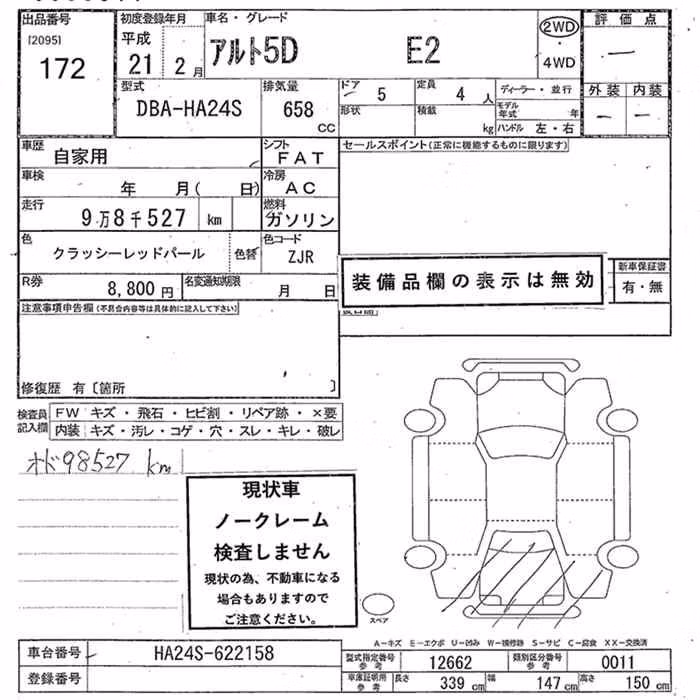 出品番号
[2095]
172
初度登録年月
平成
21 2 月
車名・グレード
アルト5D E2
2WD
4WD
評価点
—
外装 内装
— —
型式
DBA-HA24S
排気量
658
CC
ドア 5
形状
定員 4 人
積載 kg
ディーラー・並行
モデル年式 年
ハンドル 左・右
車歴
自家用
シフト
FAT
車検
年 月( 日)
冷房
AC
走行
9万8千527 km
燃料
ガソリン
色
クラッシーレッドパール
色替
色コード
ZJR
R券
8,800 円
名変通知期限
月 日
セールスポイント(正常に機能するものに限ります)
装備品欄の表示は無効
新車保証書
有・無
注意事項申告欄(不具合内容等は具体的に記入して下さい)
修復歴 有〔箇所 〕
検査員記入欄
FW キズ・飛石・ヒビ割・リペア跡・×要
内装 キズ・汚レ・コゲ・穴・スレ・キレ・破レ
オド98527 km
現状車
ノークレーム
検査しません
現状の為、不動車になる
場合もありますので
ご注意ください。
スペア
A-キズ E-エクボ U-凹み W-補修跡 S-サビ C-腐食 XX-交換済
車台番号
HA24S-622158
登録番号
型式指定番号 参考
12662
類別区分番号 参考
0011
車庫証明用 参考
長さ 339 cm
幅 147 cm
高さ 150 cm